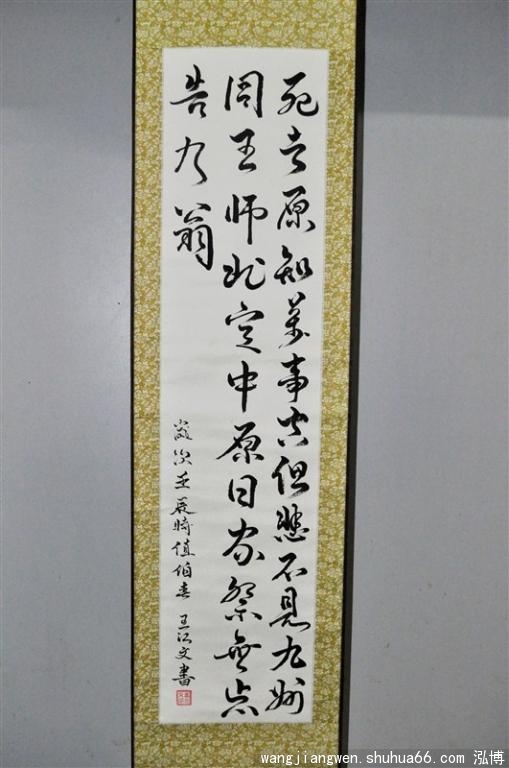 死去原知萬事空但悲不見九州
同王师北定中原日家祭無忘
告乃翁
歲次壬辰時值伯春 王江文書
wangjiangwen.shuhua66.com 泓博